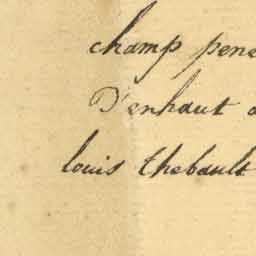 champ pene
D'enhaut a
louis thebault